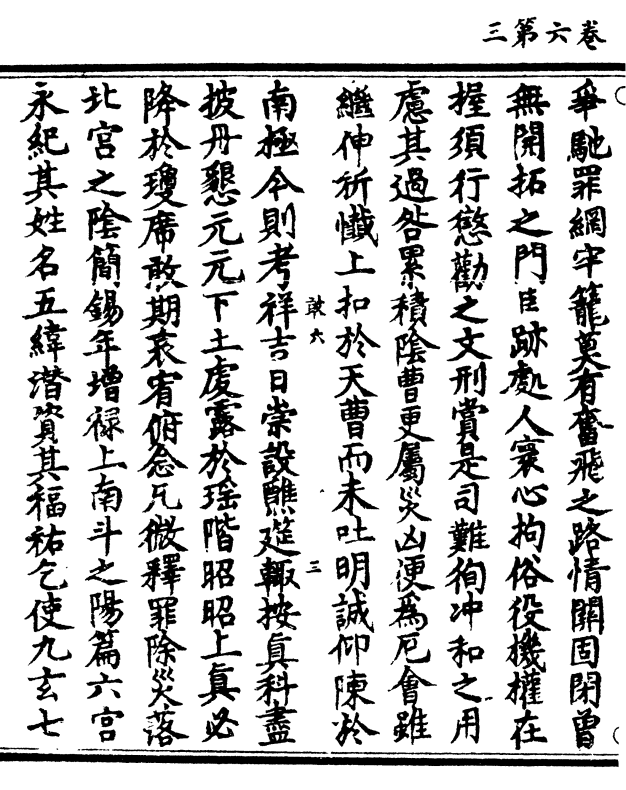 卷六第三
爭馳罪網牢籠莫有奮飛之路情關固閉曾
無開拓之門臣跡處人寰心拘俗役機權在
握須行懲勸之文刑賞是司難徇冲和之用
慮其過咎累積陰曹更屬災凶便為厄會雖
繼伸祈懺上扣於天曹而未吐明誠仰陳於
敢六 三
南極今則考祥吉日崇設醮筵輙按真科盡
披丹懇元元下土虔露於瑶階昭昭上真必
降於瓊席敢期哀宥俯念凡微釋罪除災落
北宮之陰簡錫年增禄上南斗之陽篇六宮
永紀其姓名五緯潜資其福祐乞使九玄七